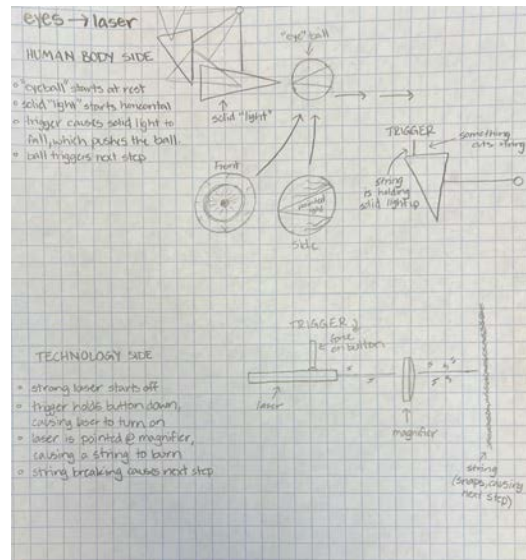 eyes → laser
HUMAN BODY SIDE
"eyeball" starts at rest
solid "light" starts horizontal
trigger causes solid light to
fall, which pushes the ball.
ball triggers next step
"eye" ball
solid "light"
front
side
TRIGGER
something
cuts string
string
is holding
solid light up
TECHNOLOGY SIDE
strong laser starts off
trigger holds button down,
causing laser to turn on
laser is pointed @ magnifier,
causing a string to burn
string breaking causes next step
TRIGGER
force
on button
laser
magnifier
string
(snaps, causing
next step)